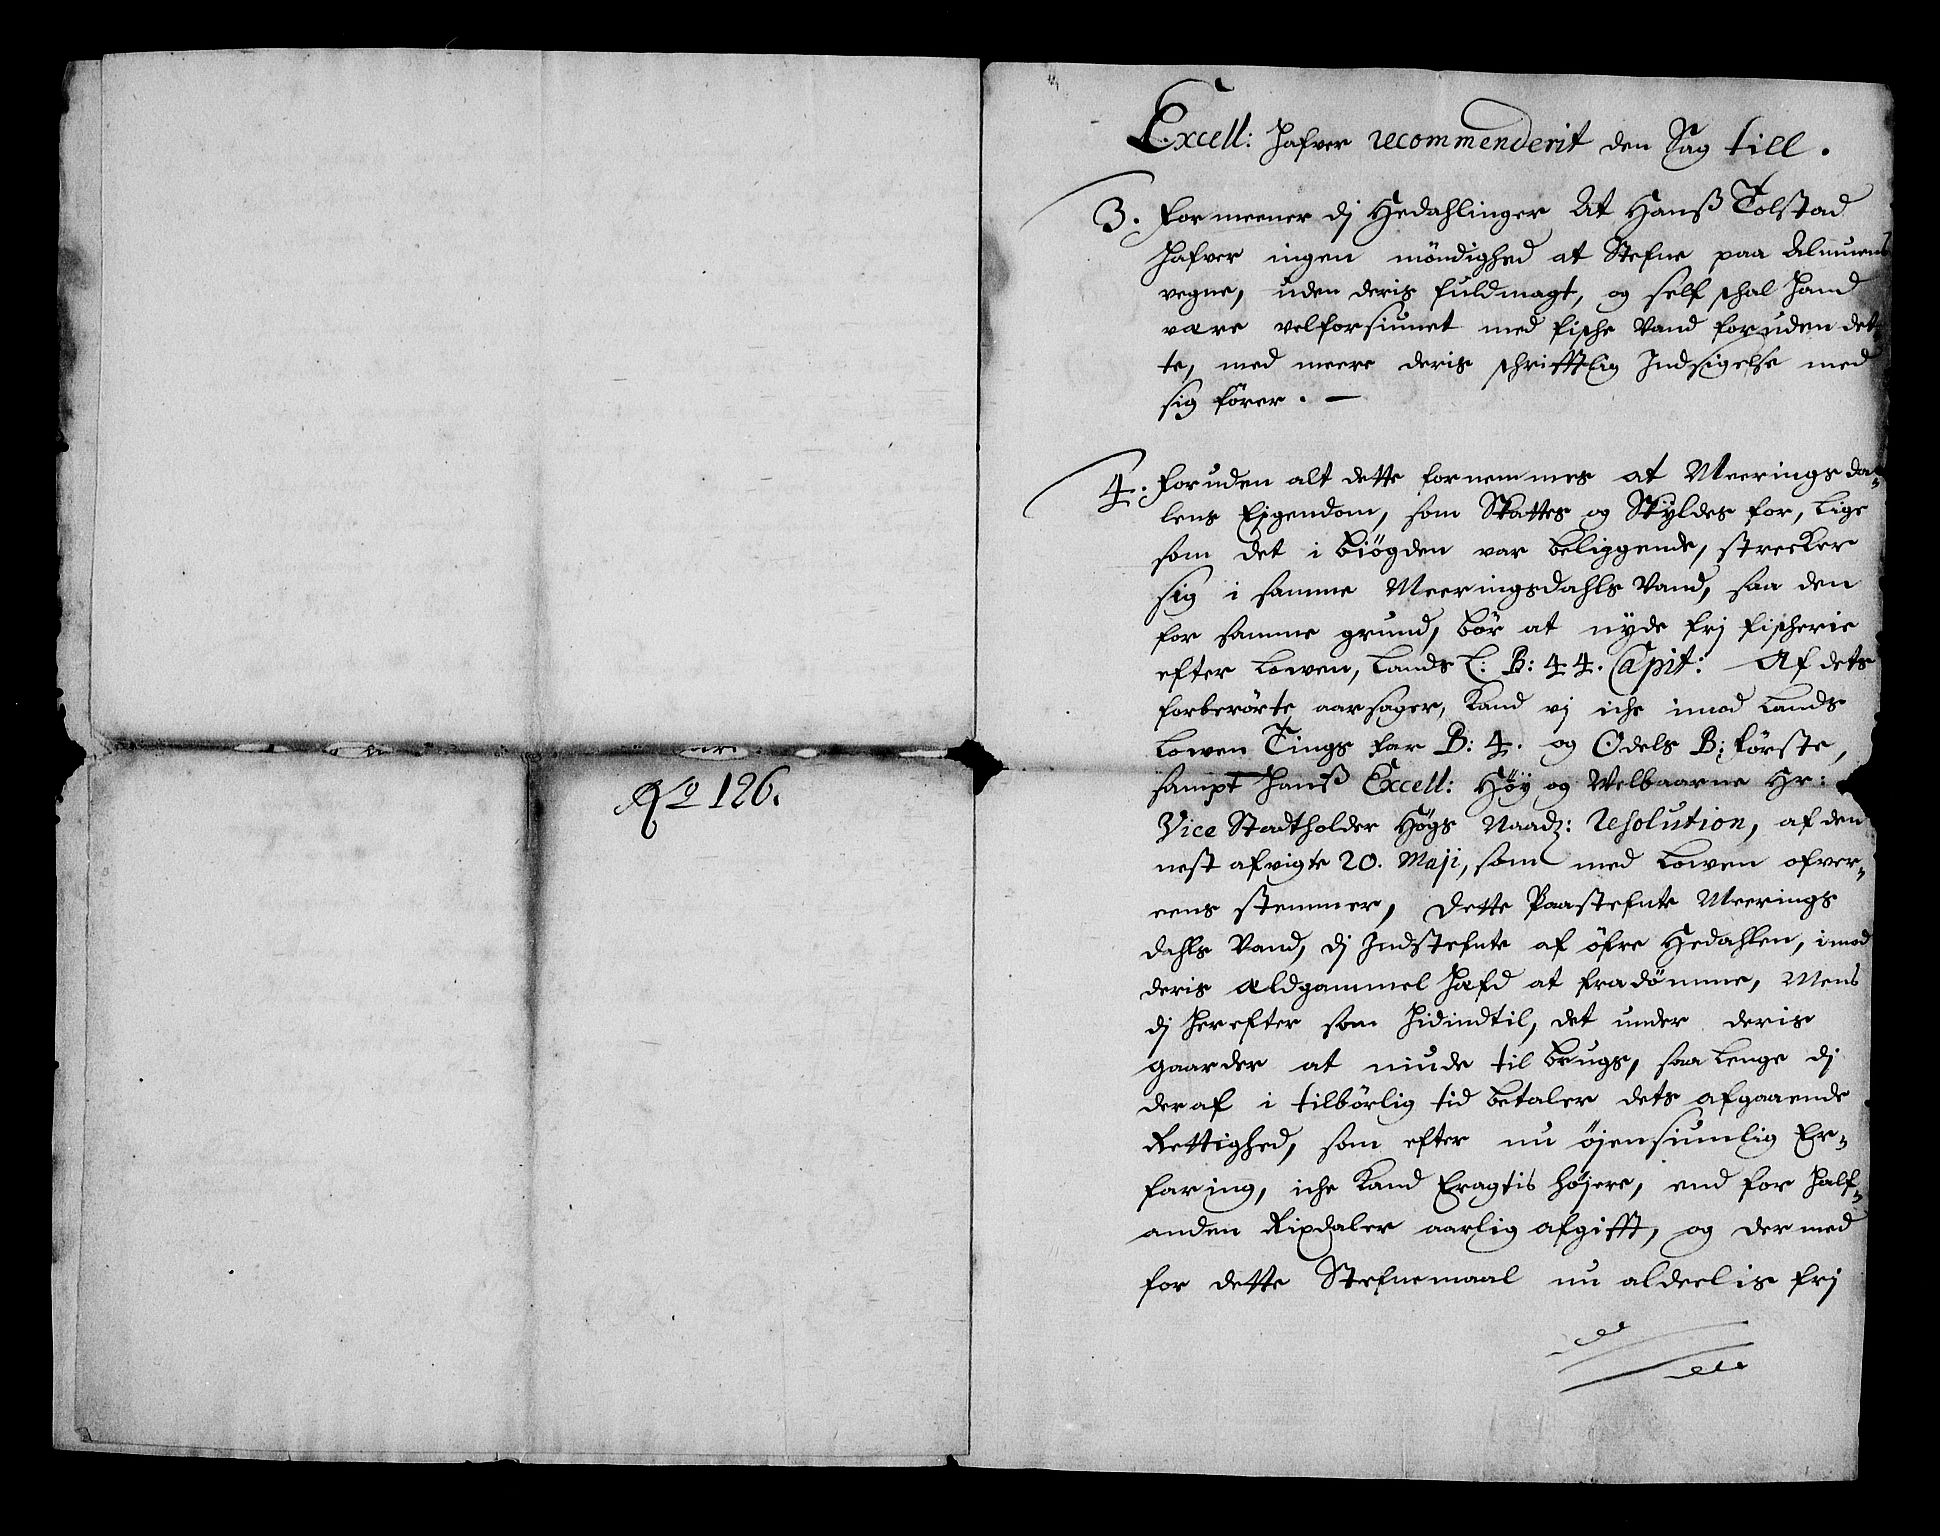 No 126.
Excell: hafver recommenderit den Sag till.
3. formeener dj Hedahlinger At Hanß Tolstad
hafver ingen møndighed at Stefne paa Almuens
vegne, uden deris fuldmagt, og self schal hand
være velforsiunet med fische Vand foruden det-
te, med meere deris schrifftlig Indsigelse med
sig fører. —
4. foruden alt dette fornemmes at Meeringsda-
lens Eigendom, som Skattes og Skyldes for, lige
som det i bøgden var beliggende, strecker
sig i samme Meeringsdahls Vand, saa den
for samme grund, bør at nyde frj fischerie
efter Lowen, Lands L: B: 44. Capit: Af dets
forberørte aarsager, Kand vj iche imod Lands
Lowen Tings far B: 4. og Odels B: første,
sampt hanß Excell: Høy og Welbaarne Hr:
Vice Stadtholder Høgs Naadz: Resolution, af den
nest afvigte 20. Maji, som med Lowen ofver-
eens stemmer, dette Paastefnte Meerings
dahls Vand, dj Indstefnte af øfre Hedahlen, imod
deris ældgammel hæfd at fradømme, Mens
dj herefter som hidindtil, det under deris
gaarder at niude til brugs, saa lenge dj
deraf i tilbørlig tid betaler dets afgaaende
Rettighed, som efter nu øjensiunlig Er-
faring, iche Kand Eragtis højere, end for half-
anden Rixdaler aarlig afgifft, og dermed
for dette Stefnemaal nu aldeelis frj